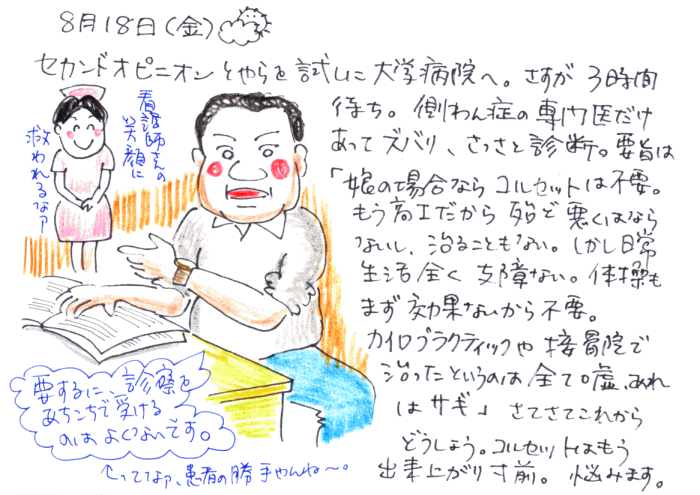 8月18日(金)
セカンドオピニオンとやらを試しに大学病院へ。さすが3時間
待ち。側わん症の専門医だけ
あってズバリ、さっさと診断。要旨は
「娘の場合ならコルセットは不要。
もう高1だから殆ど悪くはなら
ないし、治ることもない。しかし日常
生活全く支障ない。体操も
まず効果ないから不要。
カイロプラクティックや接骨院で
治ったというのは全て嘘、あれ
はサギ」さてさてこれから
どうしよう。コルセットはもう
出来上がり寸前。悩みます。
看護師さんの
笑顔に
救われるなァ
要するに、診察を
あちこちで受ける
のはよくないです。
ってなァ、患者の勝手やんね〜。